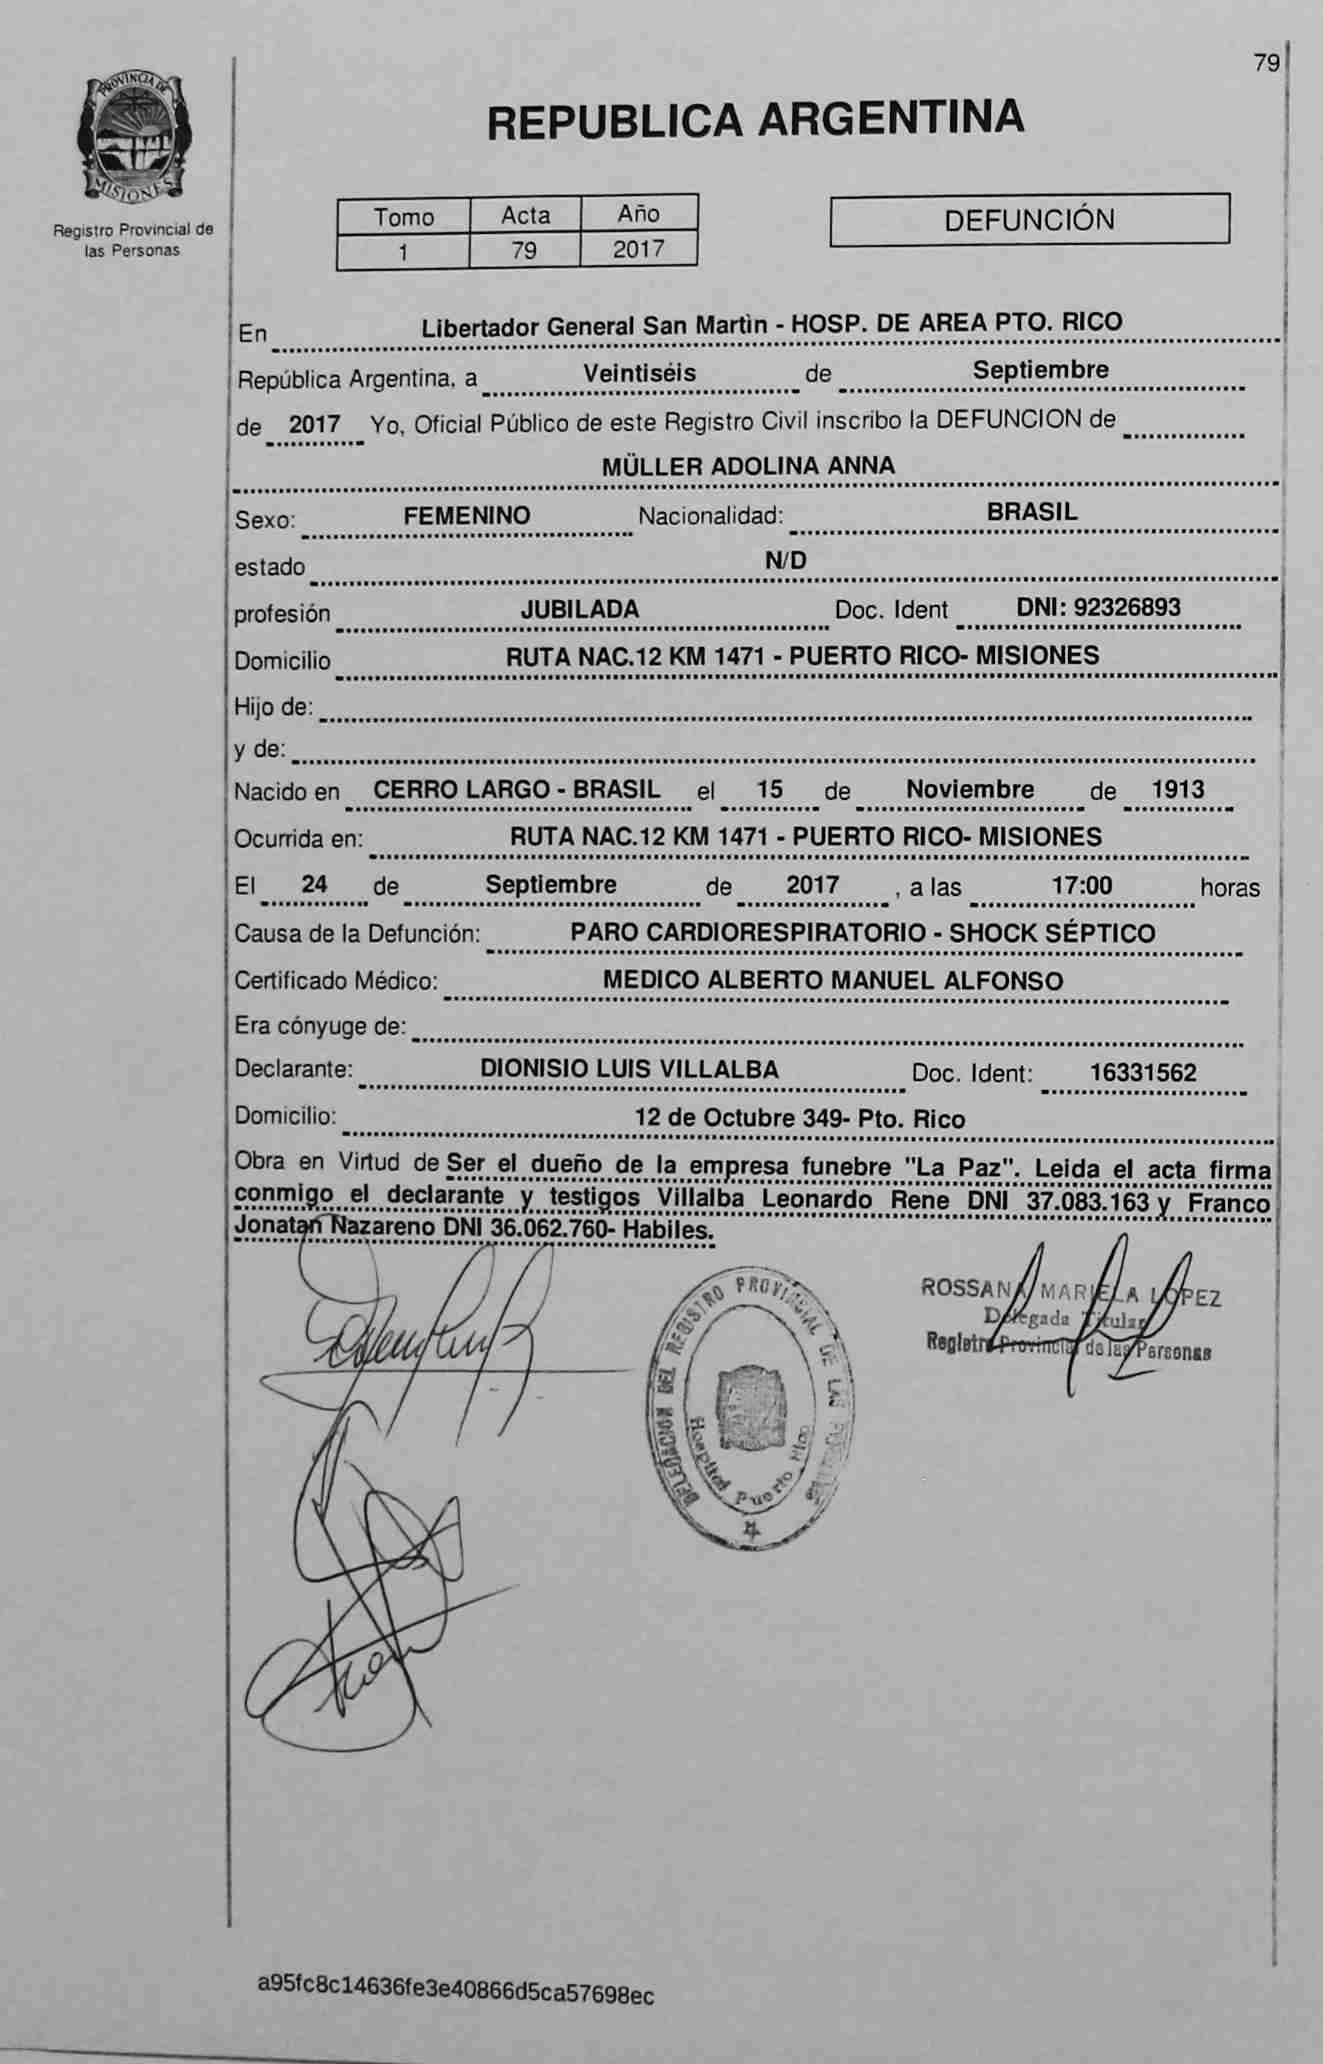 79
PROVINCIA DE
MISIONES
Registro Provincial de
las Personas
REPUBLICA ARGENTINA
Tomo Acta Año
1 79 2017
DEFUNCIÓN
En Libertador General San Martìn - HOSP. DE AREA PTO. RICO
República Argentina, a Veintiséis de Septiembre
de 2017 Yo, Oficial Público de este Registro Civil inscribo la DEFUNCION de
MÜLLER ADOLINA ANNA
Sexo: FEMENINO Nacionalidad: BRASIL
estado N/D
profesión JUBILADA Doc. Ident DNI: 92326893
Domicilio RUTA NAC.12 KM 1471 - PUERTO RICO- MISIONES
Hijo de:
y de:
Nacido en CERRO LARGO - BRASIL el 15 de Noviembre de 1913
Ocurrida en: RUTA NAC.12 KM 1471 - PUERTO RICO- MISIONES
El 24 de Septiembre de 2017 , a las 17:00 horas
Causa de la Defunción: PARO CARDIORESPIRATORIO - SHOCK SÉPTICO
Certificado Médico: MEDICO ALBERTO MANUEL ALFONSO
Era cónyuge de:
Declarante: DIONISIO LUIS VILLALBA Doc. Ident: 16331562
Domicilio: 12 de Octubre 349- Pto. Rico
Obra en Virtud de Ser el dueño de la empresa funebre "La Paz". Leida el acta firma
conmigo el declarante y testigos Villalba Leonardo Rene DNI 37.083.163 y Franco
Jonatan Nazareno DNI 36.062.760- Habiles.
DELEGACION DEL REGISTRO PROVINCIAL DE LAS PERSONAS
Hospital Puerto Rico
ROSSANA MARIELA LOPEZ
Delegada Titular
Registro Provincial de las Personas
a95fc8c14636fe3e40866d5ca57698ec